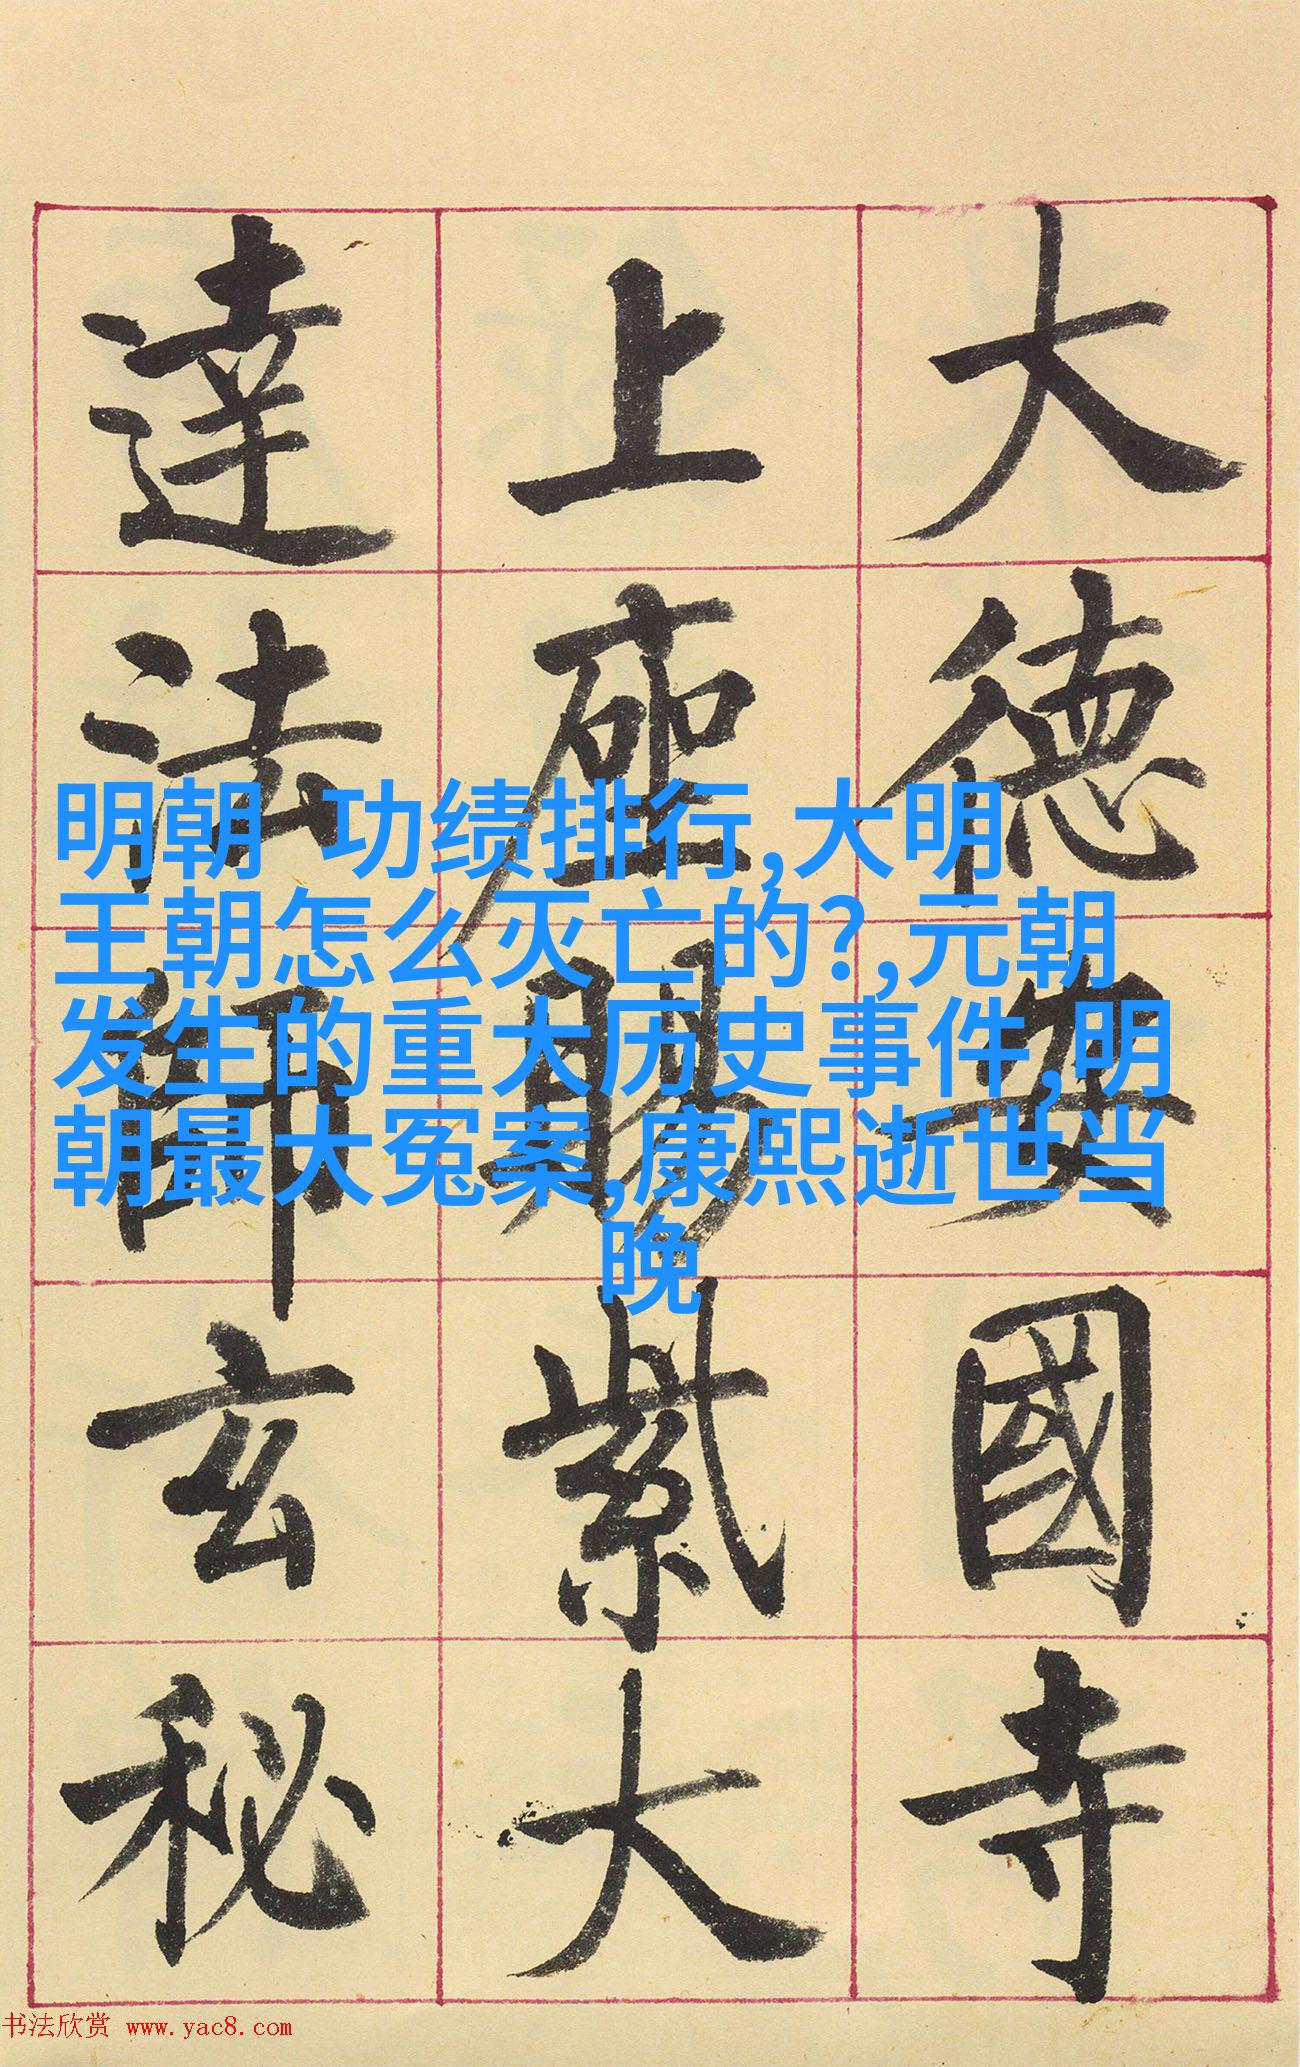 大德安國寺
上座賜紫大
達法師玄秘
明朝 功绩排行,大明
王朝怎么灭亡的?,元朝
发生的重大历史事件,明
朝最大冤案,康熙逝世当
晚
书法欣赏 www.yac8.com